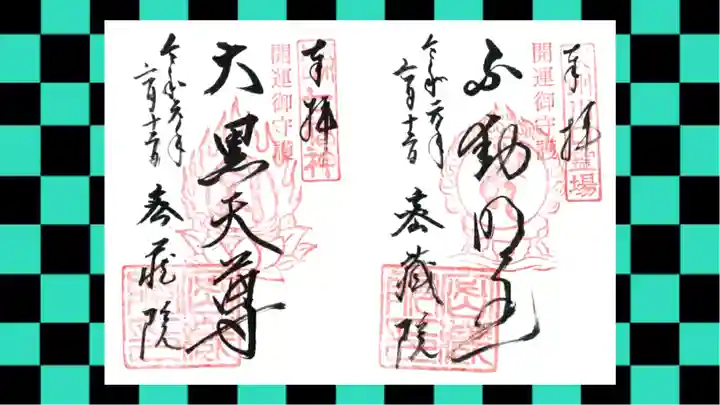 奉拝
開運御守護
不動明王
令和元年
六月十三日
密蔵院
奉拝
開運御守護
大黒天尊
令和元年
六月十三日
密蔵院